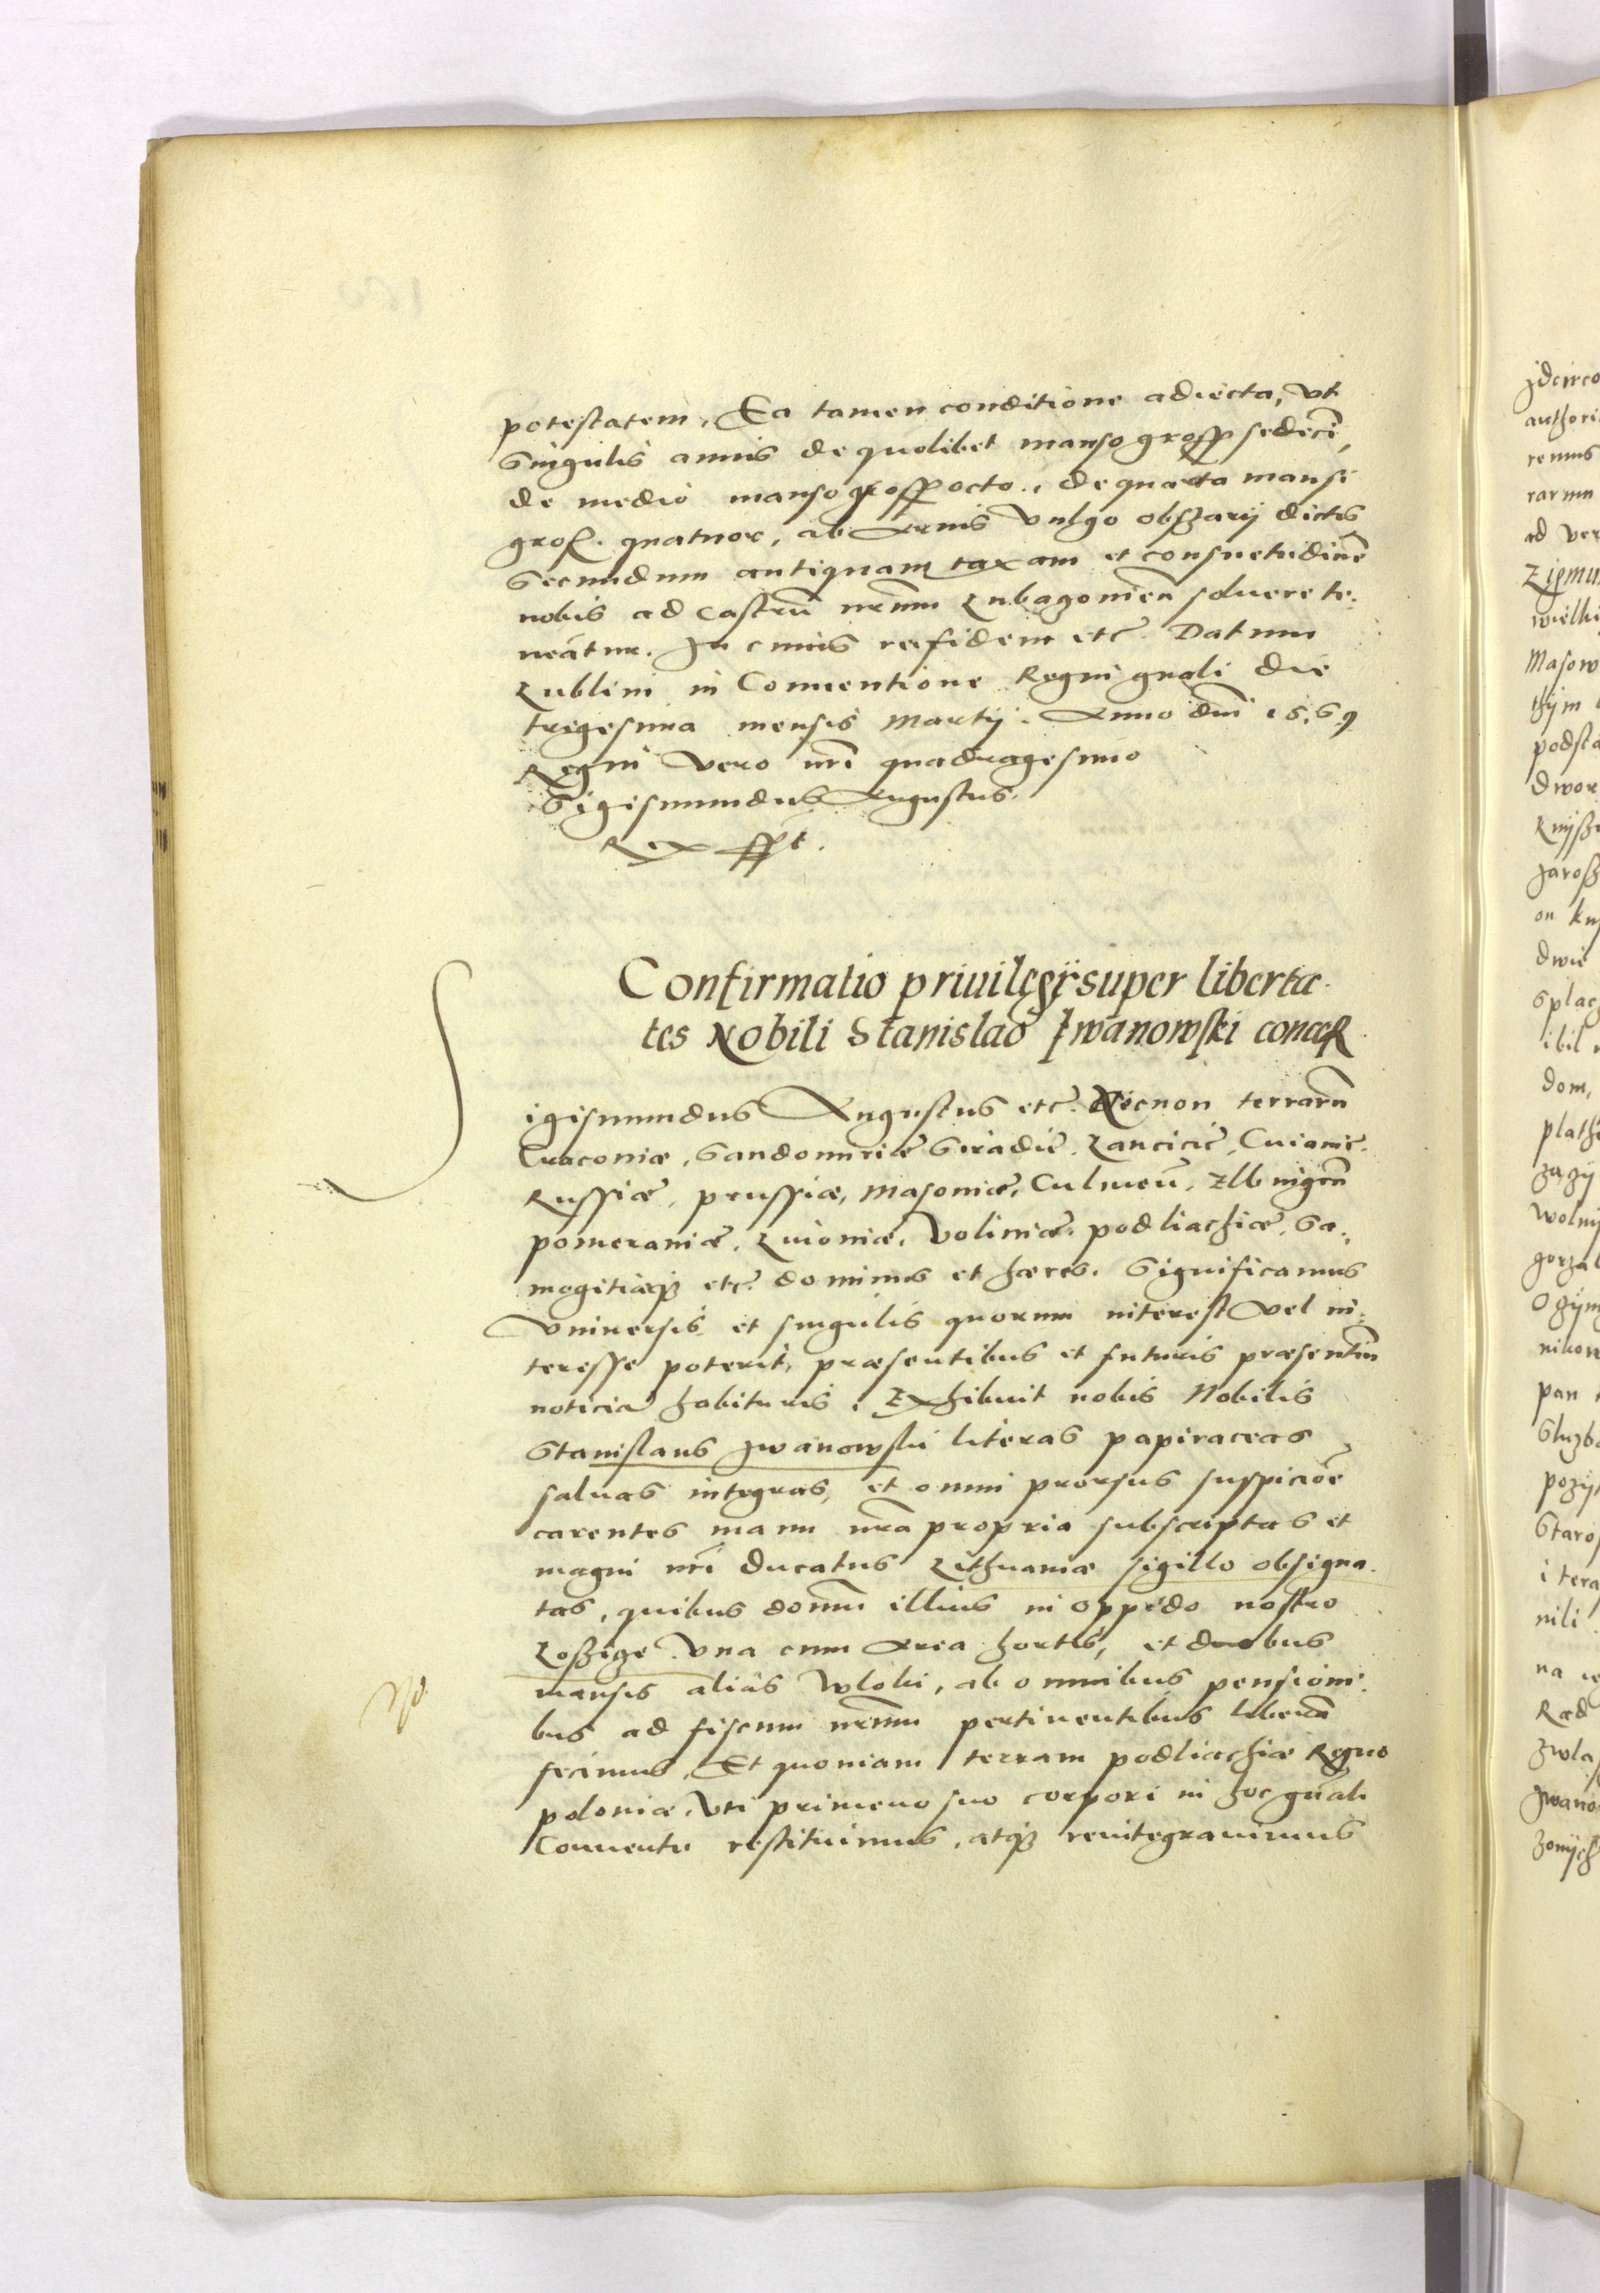 potestatem. Ea tamen conditione adiecta, vt
Singulis annis de quolibet manso gross sedeci,
de medio manso gross octo, de quarta mansi
gross. quatuor, ab Areis vulgo obszarij dictis
Secundum antiquam taxam et consuetudinē
nobis ad castrū nrum solvere te-
neātur. In cuius rei fidem etc. Datum
Lublini in Conventione Regni gnali die
trigesima mensis Martij. Anno dni 1569
Regni vero nri quadragesimo
Sigismundus Augustus
Rex sst.
Confirmatio priuilegij super liberta-
tes Nobili Stanislao Jwanowski conces
Sigismundus Augustus etc. Necnon terrarū
Cracoviæ, Sandomiriæ Siradiē. Lanciciē, Cuiaviē.
Russiæ, prussiæ, Masoviæ, Culmeñ, Elbingeñ
pomeraniæ, Kijoviæ, Voliniæ, podliachiæ, Sa-
mogitiæq3 etc. dominus et hæres. Significamus
Vniversis et singulis quorum interest vel in-
teresse poterit, præsentibus et futuris præsentiū
noticiā habituris. Exhibuit nobis Nobilis
Stanislaus Jwanowski literas papiraceas
salvas integras, et omni prorsus suspicioē
carentes manu nrā propria subscriptas et
magni nri Ducatus Lithuaniæ sigillo obsigna-
tas, quibus domū illius in oppido nostro
Loszice vna cum Area hortis, et duobus
mansis aliàs wloki, ab omnibus pensioni-
bus ad fiscum nrum pertinentibus liberā
fecimus. Et quoniam terram podliachiæ Regno
poloniæ, vti primevo suo corpori in hoc gñali
Conventu restituimus, atq3 reintegravimus
Jdcirco
authori
remus
rarum
ad ver
Zigmu
wielki
Masow
podsta
dwor
Knijsz
Jarosz
on
dwie
dom,
wolnij
gorzal
nikow
pan
Staros
i tera
nili
na
Rad
Jwano